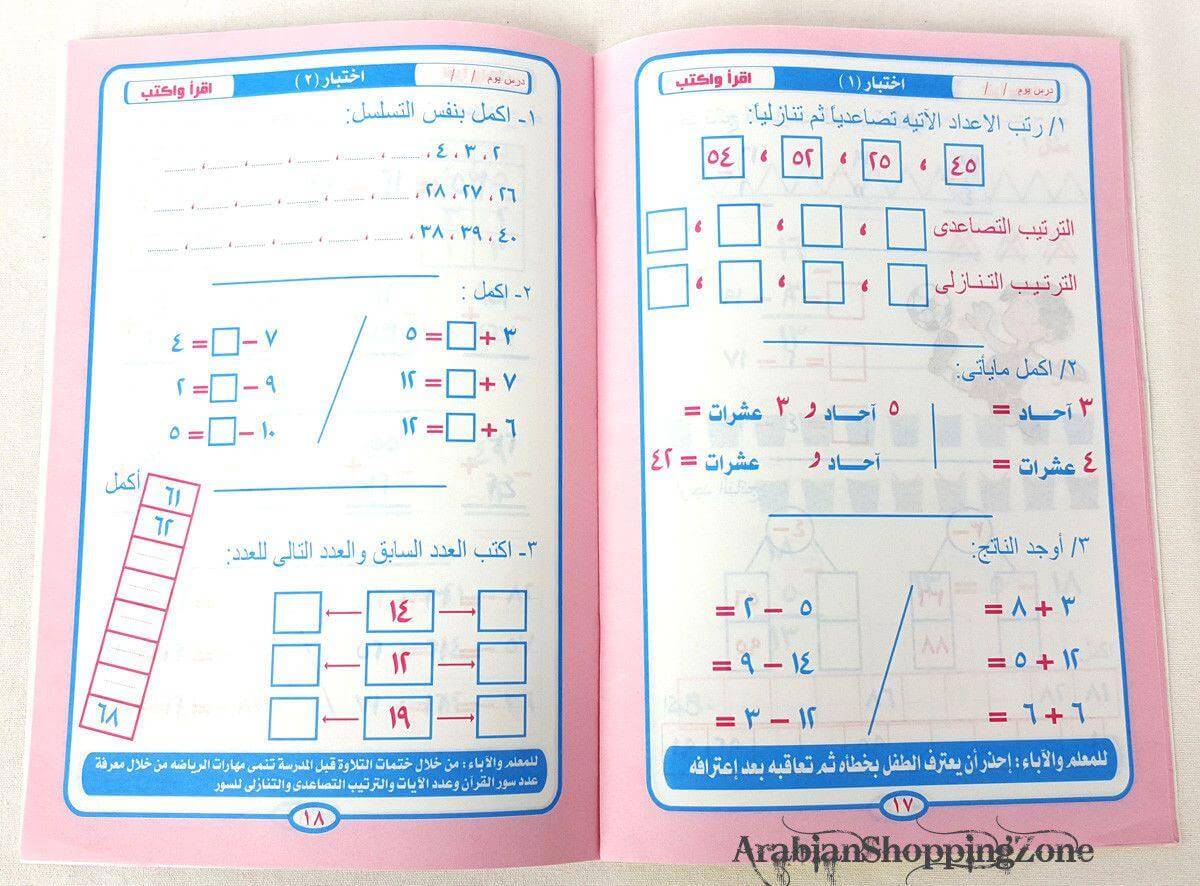 درس يوم / /
اختبار (١)
اقرأ واكتب
١/ رتب الاعداد الآتيه تصاعدياً ثم تنازلياً:
٤٥ ، ٢٥ ، ٥٢ ، ٥٤
الترتيب التصاعدى ، ، ،
الترتيب التنازلى ، ، ،
٢/ اكمل مايأتى:
٣ آحـــاد = ٥ آحـــاد و ٣ عشرات =
٤ عشرات = آحـــاد و عشرات = ٤٢
٣/ أوجد الناتج:
٣ + ٨ = ٥ - ٢ =
١٢ + ٥ = ١٤ - ٩ =
٦ + ٦ = ١٢ - ٣ =
للمعلم والآباء : إحذر أن يعترف الطفل بخطأه ثم تعاقبه بعد إعترافه
١٧
ArabianShoppingZone
درس يوم / /
اختبار (٢)
اقرأ واكتب
١- اكمل بنفس التسلسل:
٢، ٣، ٤، ...... ، ...... ، ...... ، ...... ، ...... ، ......
٢٦، ٢٧، ٢٨، ...... ، ...... ، ...... ، ...... ، ...... ، ......
٤٠، ٣٩، ٣٨، ...... ، ...... ، ...... ، ...... ، ...... ، ......
٢- اكمل :
٣ + □ = ٥ ٧ - □ = ٤
٧ + □ = ١٢ ٩ - □ = ٢
٦ + □ = ١٢ ١٠ - □ = ٥
أكمل
٦١
٦٢
٦٨
٣- اكتب العدد السابق والعدد التالى للعدد:
١٤
١٢
١٩
للمعلم والآباء : من خلال ختمات التلاوة قبل المدرسة تنمى مهارات الرياضه من خلال معرفة
عدد سور القرآن وعدد الآيات والترتيب التصاعدى والتنازلى للسور
١٨